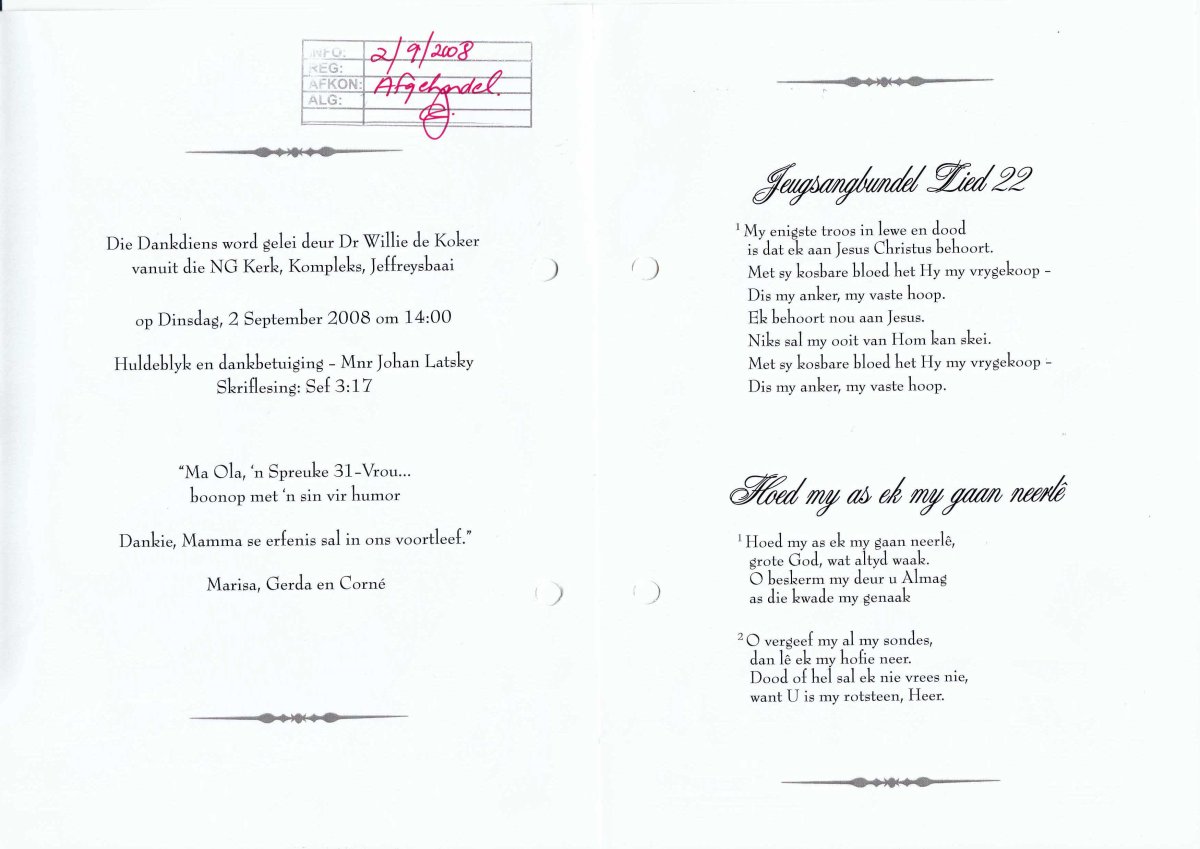 INFO: 2/9/2008
REG:
AFKON: Afgehandel.
ALG:
Die Dankdiens word gelei deur Dr Willie de Koker
vanuit die NG Kerk, Kompleks, Jeffreysbaai
op Dinsdag, 2 September 2008 om 14:00
Huldeblyk en dankbetuiging – Mnr Johan Latsky
Skriflesing: Sef 3:17
“Ma Ola, ‘n Spreuke 31-Vrou...
boonop met ‘n sin vir humor
Dankie, Mamma se erfenis sal in ons voortleef.”
Marisa, Gerda en Corné
Jeugsangbundel Lied 22
1 My enigste troos in lewe en dood
is dat ek aan Jesus Christus behoort.
Met sy kosbare bloed het Hy my vrygekoop –
Dis my anker, my vaste hoop.
Ek behoort nou aan Jesus.
Niks sal my ooit van Hom kan skei.
Met sy kosbare bloed het Hy my vrygekoop –
Dis my anker, my vaste hoop.
Hoed my as ek my gaan neerlê
1 Hoed my as ek my gaan neerlê,
grote God, wat altyd waak.
O beskerm my deur u Almag
as die kwade my genaak
2 O vergeef my al my sondes,
dan lê ek my hofie neer.
Dood of hel sal ek nie vrees nie,
want U is my rotsteen, Heer.